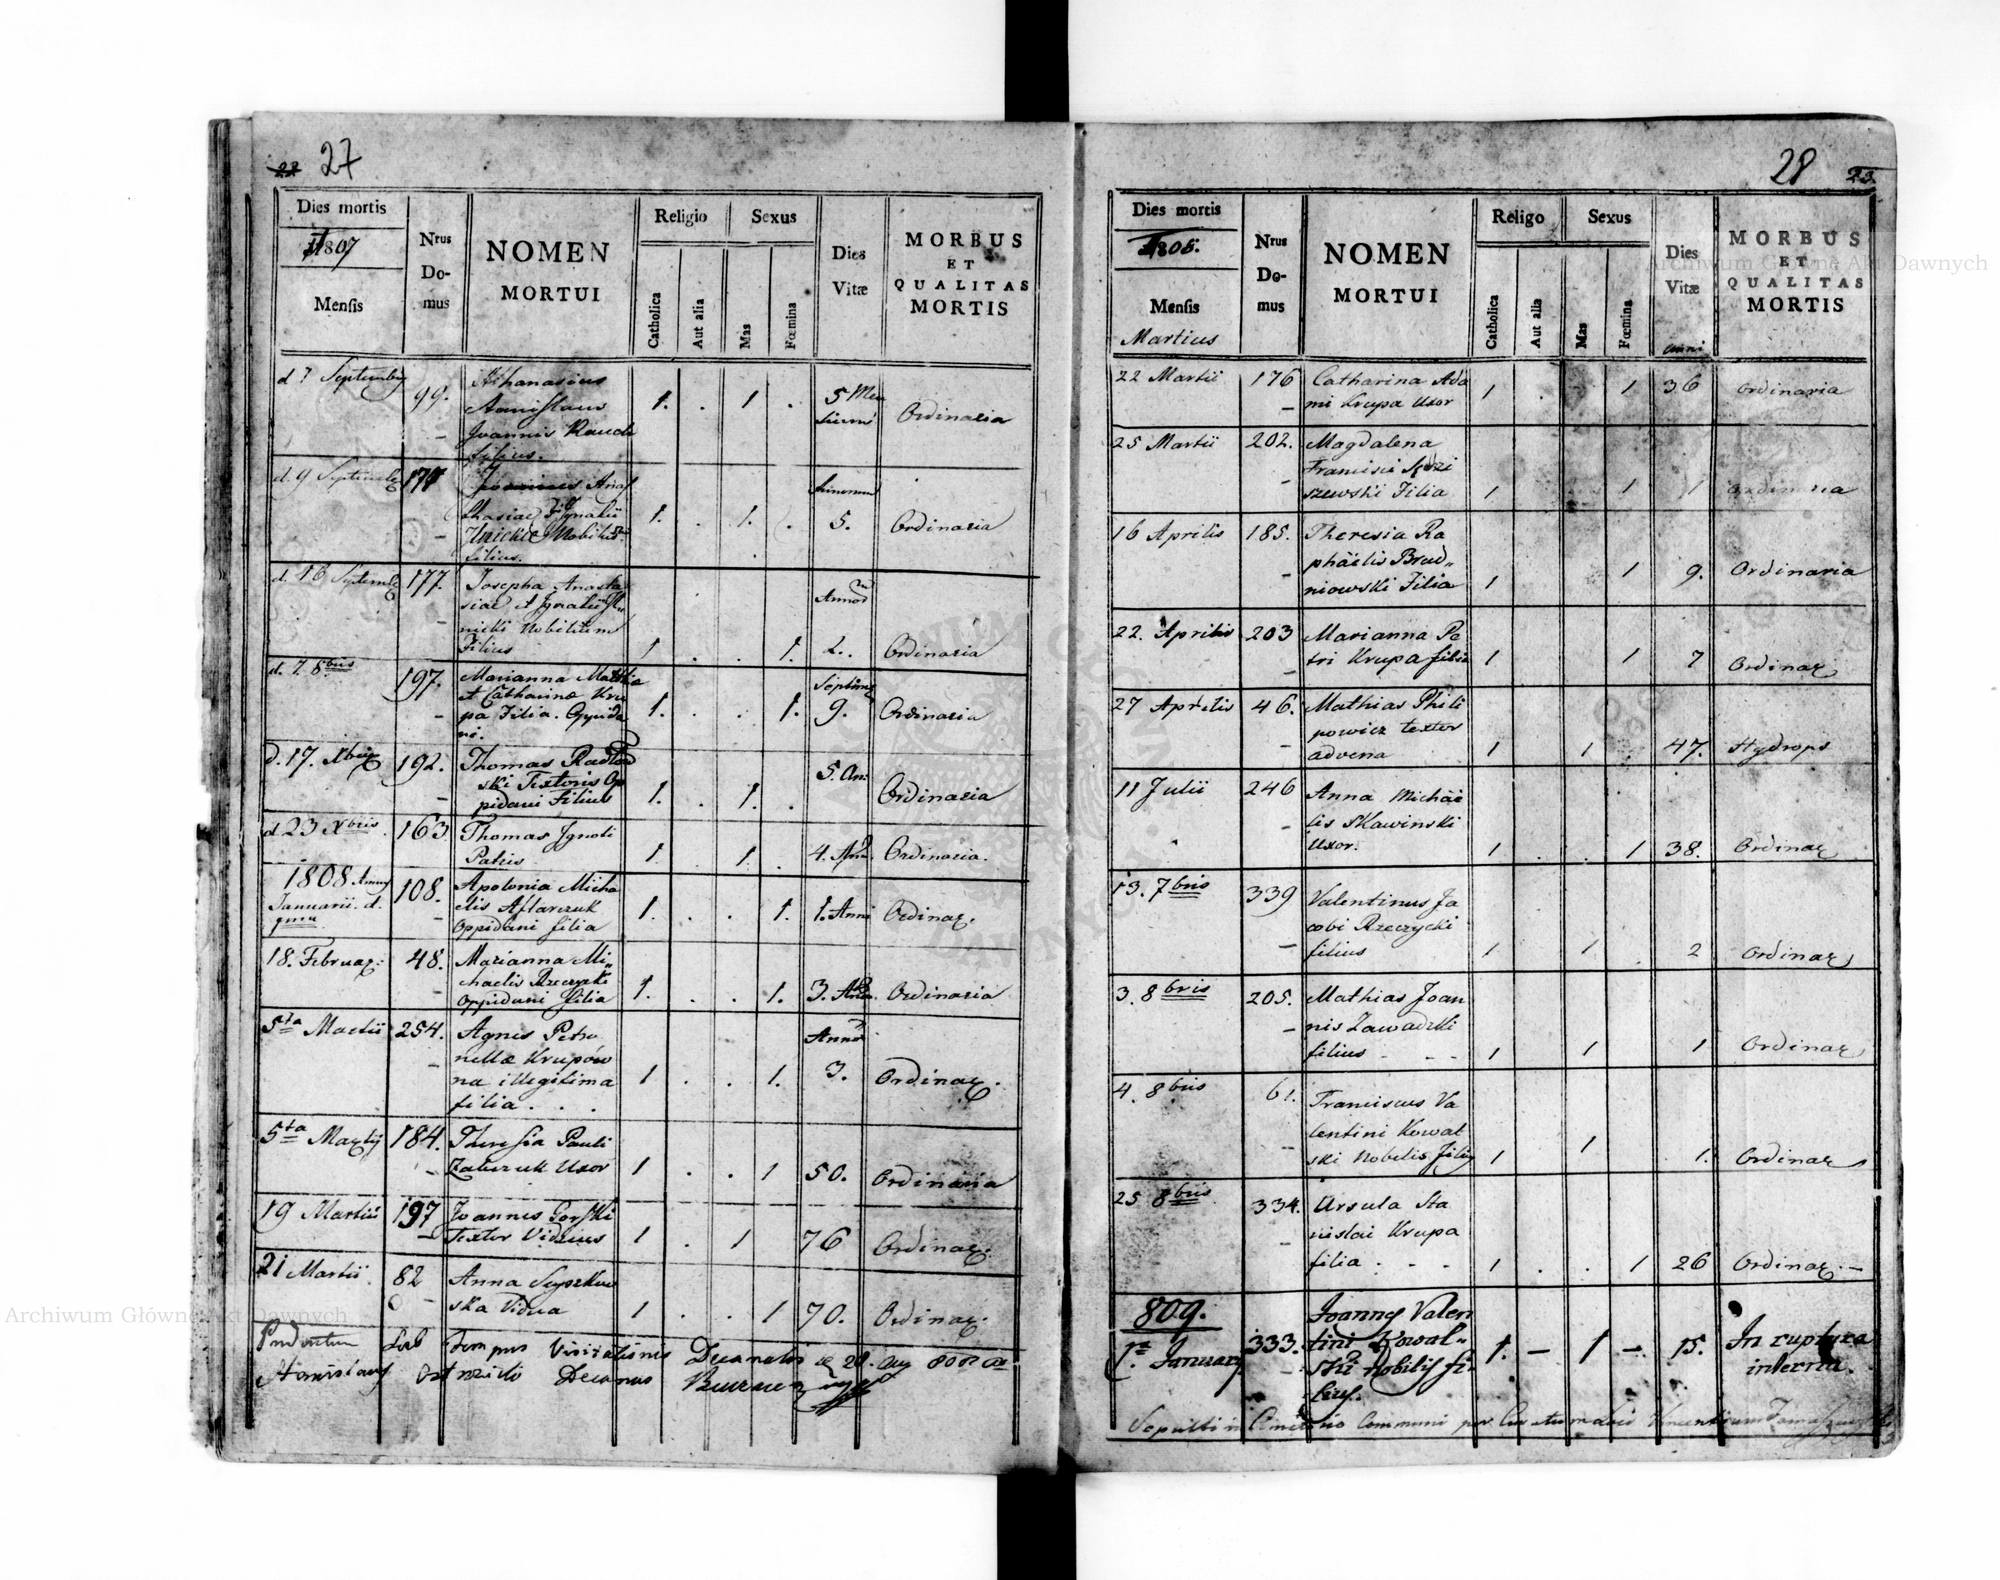 22 27
Dies mortis
1807
Mensis
Nrus Do-mus
NOMEN MORTUI
Religio
Catholica
Aut alia
Sexus
Mas
Fœmina
Dies Vitæ
MORBUS ET QUALITAS MORTIS
d 7 Septembr
99.
Athanasius
Stanislaus
Joannis
filius.
1. . 1 .
5 Men
Ordinaria
d. 9 Septembr
Joannes Anas
thasiae Ignatii
Nobilis
filius.
1. . 1. .
5.
Ordinaria
d. 16 Septemb
177.
Josepha Anasta
siae et Ignatii
nicki Nobilium
Filius
1 . . 1.
Annor
2.
Ordinaria
d. 7. 8bris
197.
Marianna Mathia
et Catharinæ Kru
pa Filia. Oppida
ni.
1. . . 1.
Septiman
9.
Ordinaria
d. 17. Xbris
192.
Thomas
ski Textoris Op
pidani Filius
1. . 1. .
5. An:
Ordinaria
d 23 Xbris
163
Thomas Ignoti
Patris
1. . 1. .
4. An.
Ordinaria.
1808 Anni
Januarii. d.
108.
Apolonia Micha
elis
Oppidani filia
1. . . 1.
1. Anni
Ordinar.
18. Februar:
48.
Marianna Mi-
chaelis Rzeczycki
Oppidani filia
1. . . 1.
3. Ann.
Ordinaria
5ta Martii
254.
Agnes Petro
nellæ Krupów
na illegitima
filia . . .
1 . . 1.
Annor
3.
Ordinar.
5ta Martij
184.
Theresia Pauli
Uxor
1 . . 1
50.
Ordinaria
19 Martii
197
Joannes Gorski
Textor Viduus
1 . 1
76
Ordinar.
21 Martii
82
Anna
ska Vidua
1 . . 1
70.
Ordinar.
Sub tempus Visitationis Decanalis
Stanislaus Decanus
28 23
Dies mortis
1808.
Mensis
Martius
Nrus Do-mus
NOMEN MORTUI
Religo
Catholica
Aut alia
Sexus
Mas
Fœmina
Dies Vitæ
anni
MORBUS ET QUALITAS MORTIS
22 Martii
176
Catharina Ada
mi Krupa Uxor
1 . 1 36
Ordinaria
25 Martii
202.
Magdalena
Francisci
szewski Filia
1 1 1
Ordinaria
16 Aprilis
185.
Theresia Ra
phäelis Brud„
niowski Filia
1 1 9.
Ordinaria
22. Aprilis
203
Marianna Pe
tri Krupa filia
1 1 7
Ordinar
27 Aprilis
46.
Mathias Phili
powicz textor
advena
1 1 47.
Hydrops
11 Julii
246
Anna Michäe
lis Skawinski
Uxor.
1 . . 1 38.
Ordinar
13. 7bris
339
Valentinus Ja
cobi Rzeczycki
filius
1 1 . 2
Ordinar
3. 8bris
205.
Mathias Joan
nis Zawadzki
filius - - -
1 1 1
Ordinar
4. 8bris
61.
Franciscus Va
lentini Kowal
ski Nobilis filius
1 1 1.
Ordinar
25 8bris
334.
Ursula Sta
nislai Krupa
filia . - -
1 . . 1 26
Ordinar. —
809.
1a January
333.
Joannes Valen
tini Kowal„
ski Nobilis fi
lius.
1. — 1 — 15.
In ruptura
interna.
Sepulti in Communi per Vincentium
Archiwum Główne Akt Dawnych
Archiwum Główne Akt Dawnych